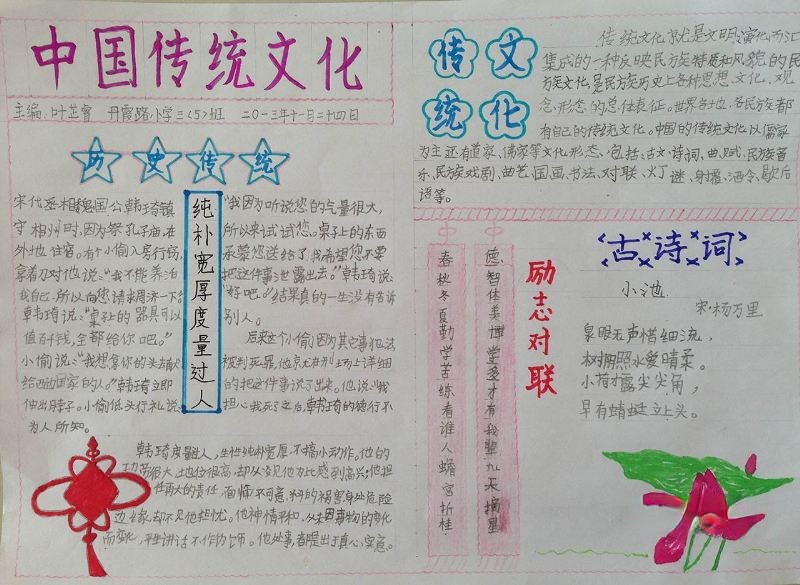 中国传统文化
主编:叶芷曾 丹霞路小学三〈5〉班 二〇一三年十一月二十四日
历史传统
纯朴宽厚度量过人
宋代丞相魏国公韩琦镇
守相州时,因为祭孔子庙在
外地住宿。有个小偷入房行窃,
拿着刀对他说:“我不能养活
我自己,所以向您请求周济一下。”
韩琦说:“桌上的器具可以
值百千钱,全部给你吧。”
小偷说:“我想拿你的头去献
给西边国家的人。”韩琦立即
伸出脖子。小偷低头行礼说:
“我因为听说您的气量很大,
所以来试试您。桌子上的东西
承蒙您送给了,我希望您不要
把这件事泄露出去。”韩琦说:
“好吧。”结果真的一生没有告诉
别人。
后来这个小偷,因为其它事犯法
被判死罪,他竟然在刑场上详细
的把这件事说了出来。他说:“我
担心我死了之后,韩琦的德行不
为人所知。
韩琦度量过人,生性纯朴宽厚,不搞小动作。他的
功劳很大,地位很高,却从没见他为此感到高兴;他担
任再大的责任,面临不可意料的祸害,身处危险
边缘,却不见他担忧。他神情平和,从未因事物的变化
而变化,平生讲话不作伪饰。他处事都是出于真心实意。
传文
统化
传统文化就是文明演化而汇
集成的一种反映民族特质和风貌的民
族文化,是民族历史上各种思想文化、观
念形态的总体表征。世界各地,各民族都
有自己的传统文化。中国的传统文化以儒家
为主还有道家、佛家等文化形态、包括:古文、诗词、曲、赋、民族音
乐、民族戏剧、曲艺、国画、书法、对联、灯谜、射覆、酒令、歇后
语等。
励志对联
德智体美博学多才有我辈九天摘星
春秋冬夏勤学苦练看谁人蟾宫折桂
古诗词
小池
宋·杨万里
泉眼无声惜细流,
树阴照水爱晴柔。
小荷才露尖尖角,
早有蜻蜓立上头。